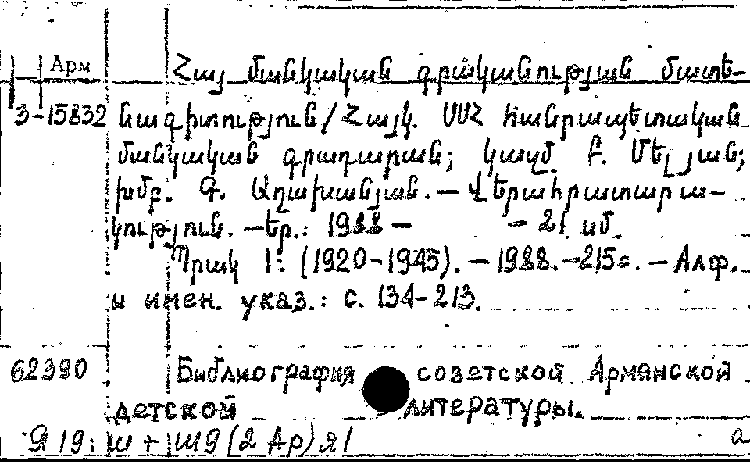 Арм
Հայ մանկական գրականության մատե-
3-15832 նագիտություն/Հայկ. ՍՍՀ հանրապետական
մանկական գրադարան; կազմ. Բ. Մելյան;
խմբ. Գ. Աղախանյան. — Վերահրատարա-
կություն. — Եր.: 1988 — — 21 սմ.
Պրակ 1: (1920-1945). — 1988. — 215с. — Алф.
и имен. указ.: с. 134-213.
62390 Библиография советской Армянской
детской литературы.
Я19: